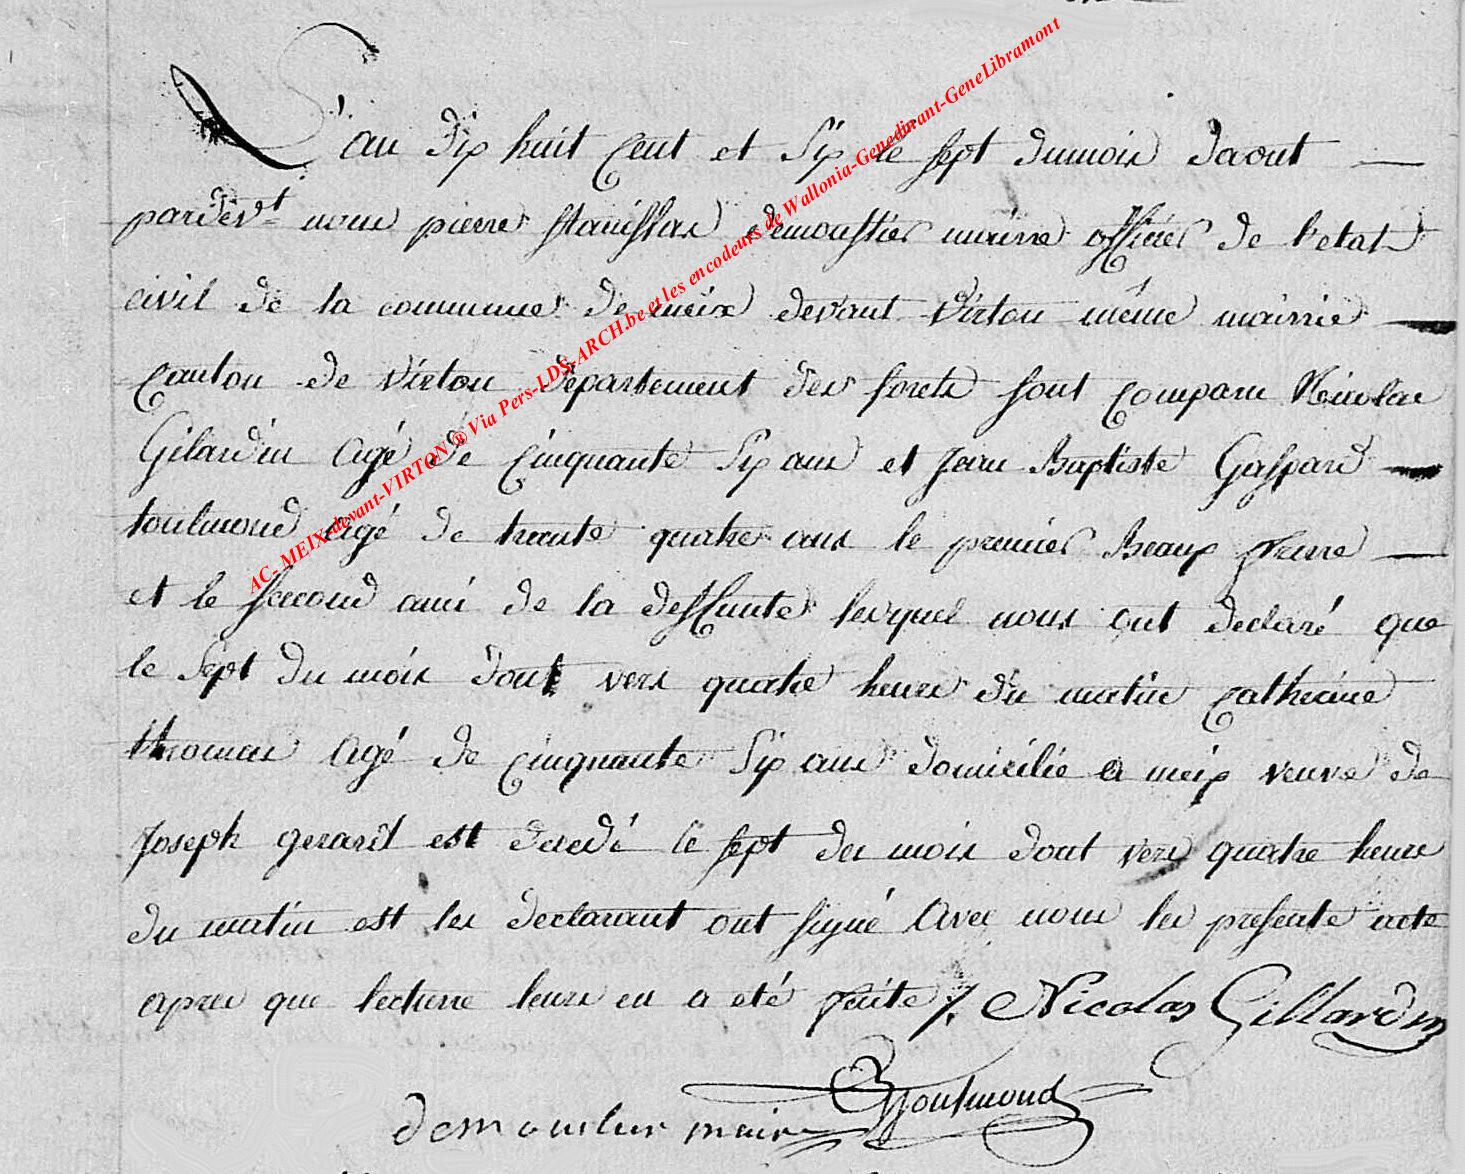 L'an dix huit cent et Six le sept dumois daout
pardev.t nous pierre stanisslas demoustier mairre officier de l'etat
civil de la commune de meix devant Virton même mairrie
canton de Virton departement des forets sont comparu Nicolas
Gilardin Agé de Cinquante Six ans et Jean Baptiste Gaspard
toulmond Agé de trante quatre ans le premier Beaux frerre
et le second ami de la deffunte lesquel nous ont declaré que
le Sept du mois dout vers quatre heure du matin catherine
thomas Agé de cinquante Six ans domicilié a meix veuve de
Joseph gerard est decedé le sept des mois dout vers quatre heure
du matin est les declarant ont signé Avec nous les presente acte
apres que lecturre leurs en a eté faite ./. Nicolas Gillardin
demoustier maire Toulmond
AC- MEIX-devant-VIRTON ® Via Pers-LDS-ARCH.be et les encodeurs de Wallonia-Genedinant-GeneLibramont